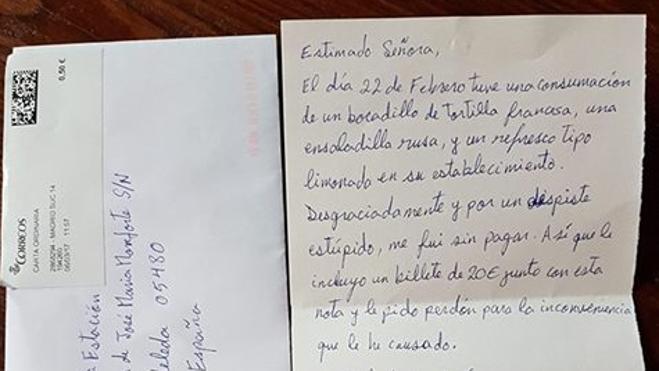 0,50 €
CORREOS
CARTA ORDINARIA
MADRID SUC 14
11:57
Estación
de José María Monforte S/N
05480
España
Estimado Señora,
El día 22 de Febrero tuve una consumación
de un bocadillo de tortilla francesa, una
ensaladilla rusa, y un refresco tipo
limonada en su establecimiento.
Desgraciadamente y por un despiste
estúpido, me fui sin pagar. Así que le
incluyo un billete de 20€ junto con esta
nota y le pido perdón para la inconveniencia
que le he causado.